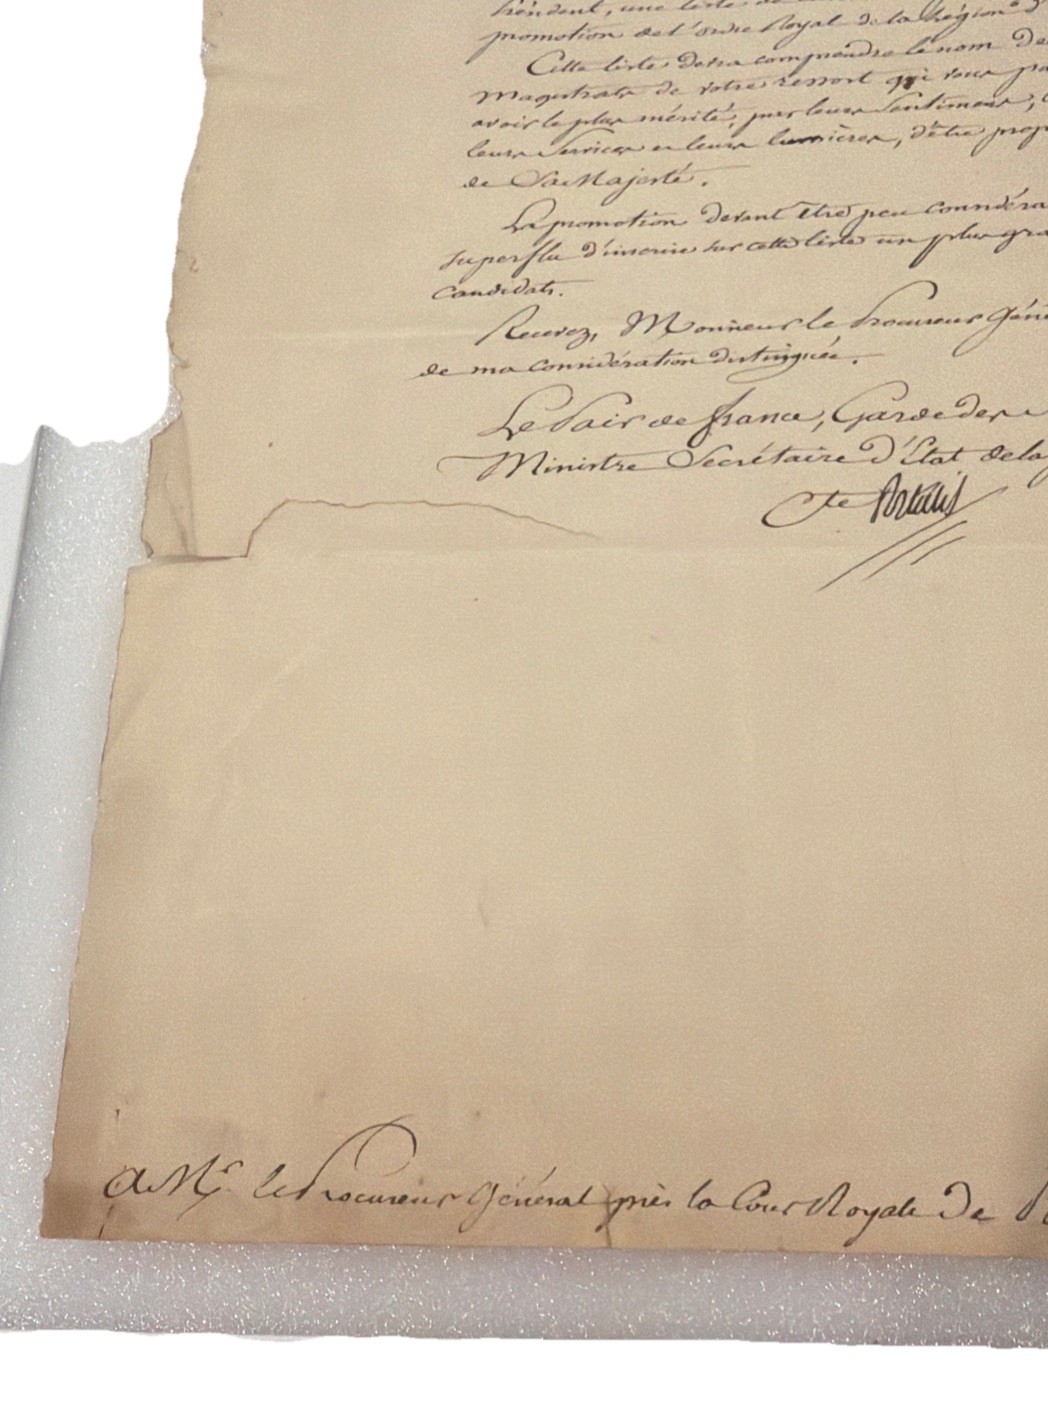 une liste de
promotion de l'ordre Royal de la Légion d'
Cette liste devra comprendre le nom des
Magistrats de votre ressort qui vous pa
avoir le plus mérité, par leurs Sentimens,
leurs Services et leurs lumières, d'être prop
de Sa Majesté.
La promotion devant être peu considéra
superflu d'inscrire sur cette liste un plus gra
candidats.
Recevez, Monsieur le Procureur Géné
de ma considération distinguée.
Le Pair de france, Garde des
Ministre Secrétaire d'Etat de la
Cte Portalis
A Mr. le Procureur Général près la Cour Royale de